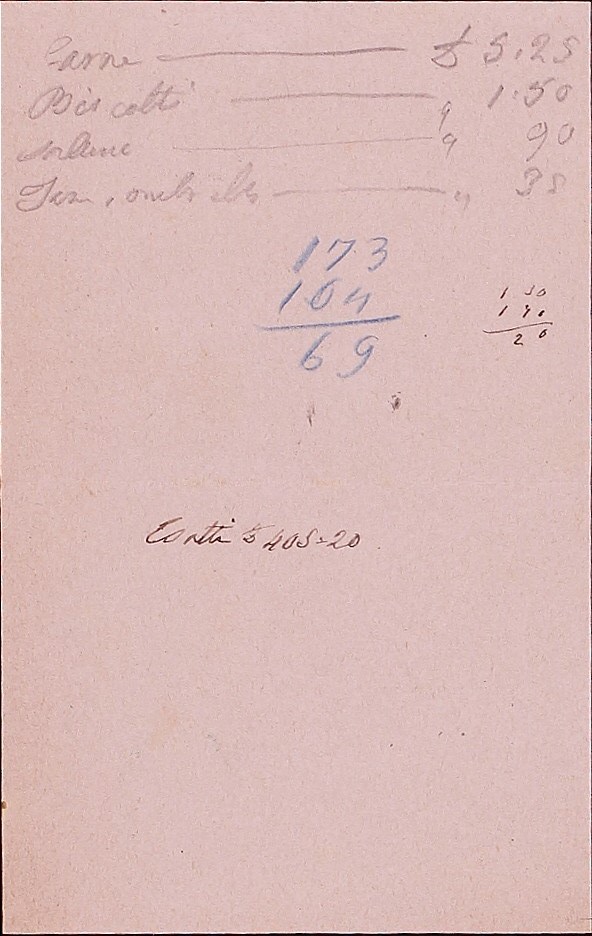 Carne — £ 5.25
Biscotti — " 1.50
— " 90
— " 35
173
104
69
150
20
Conti £ 405=20